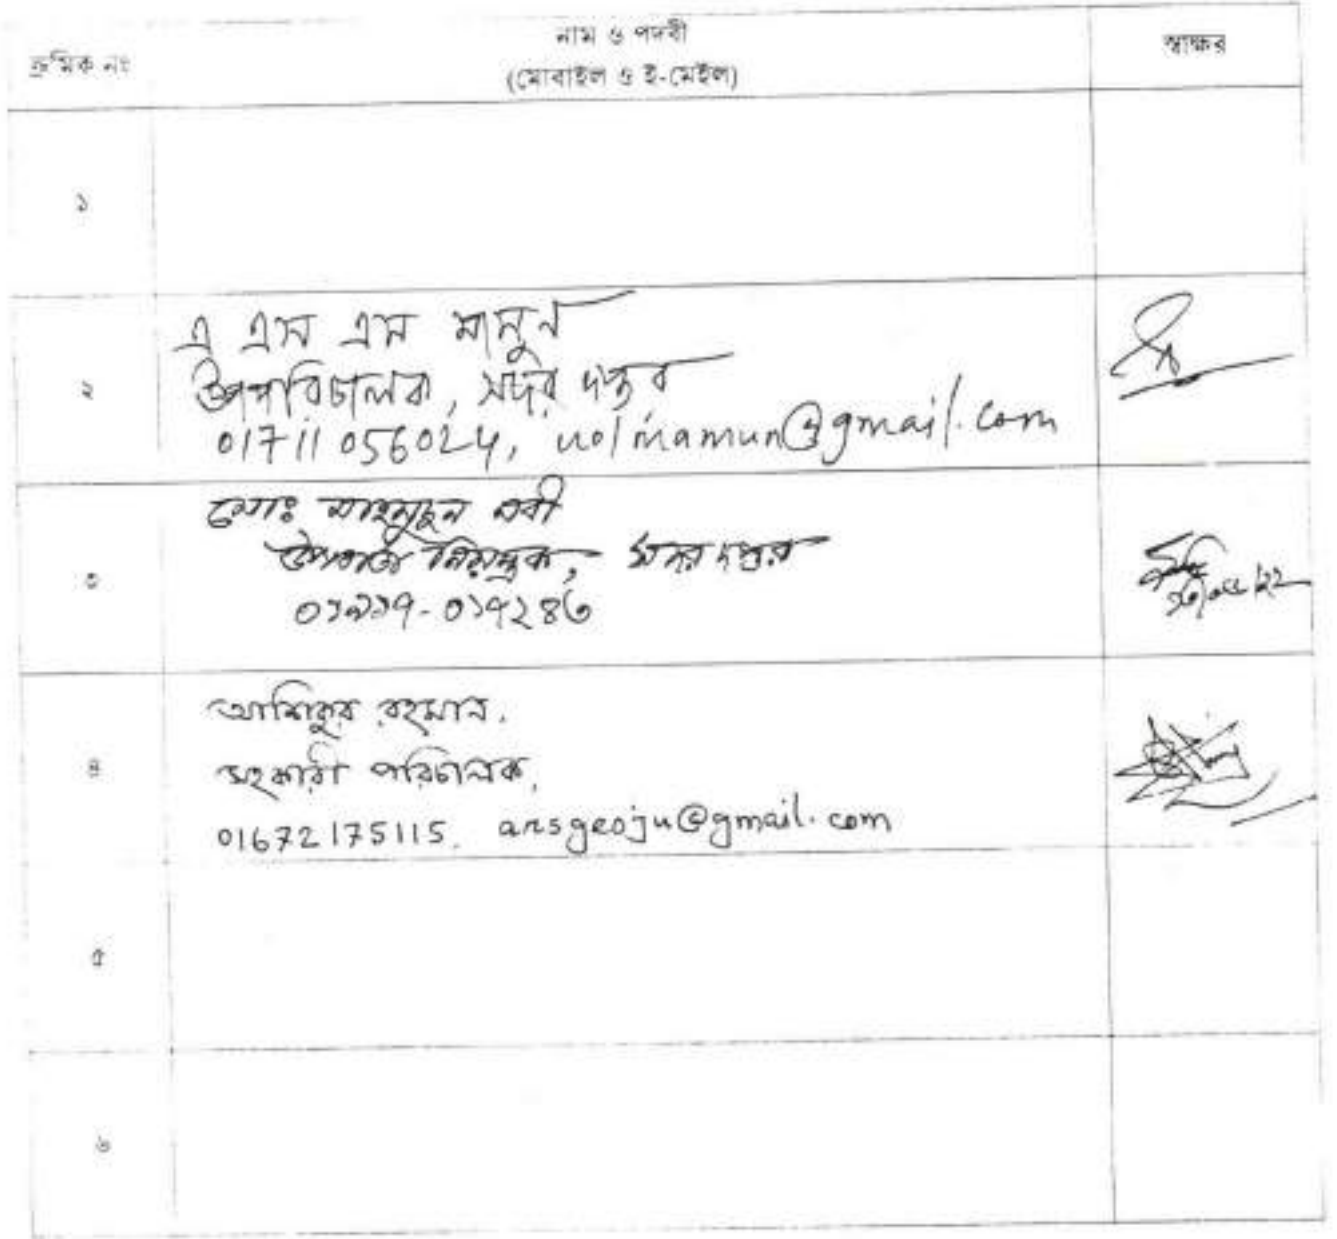 ক্রমিক নং
নাম ও পদবী
(মোবাইল ও ই-মেইল)
স্বাক্ষর
১
২
এ এস এস মামুন
উপপরিচালক, সদর দপ্তর
01711056024, uolmamun@gmail.com
৩
মোঃ নবী
নিয়ন্ত্রক, সদর দপ্তর
০১৯১৭-০১৭২৪৩
৪
আশিকুর রহমান.
সহকারী পরিচালক,
01672175115. arsgeoju@gmail.com
৫
৬